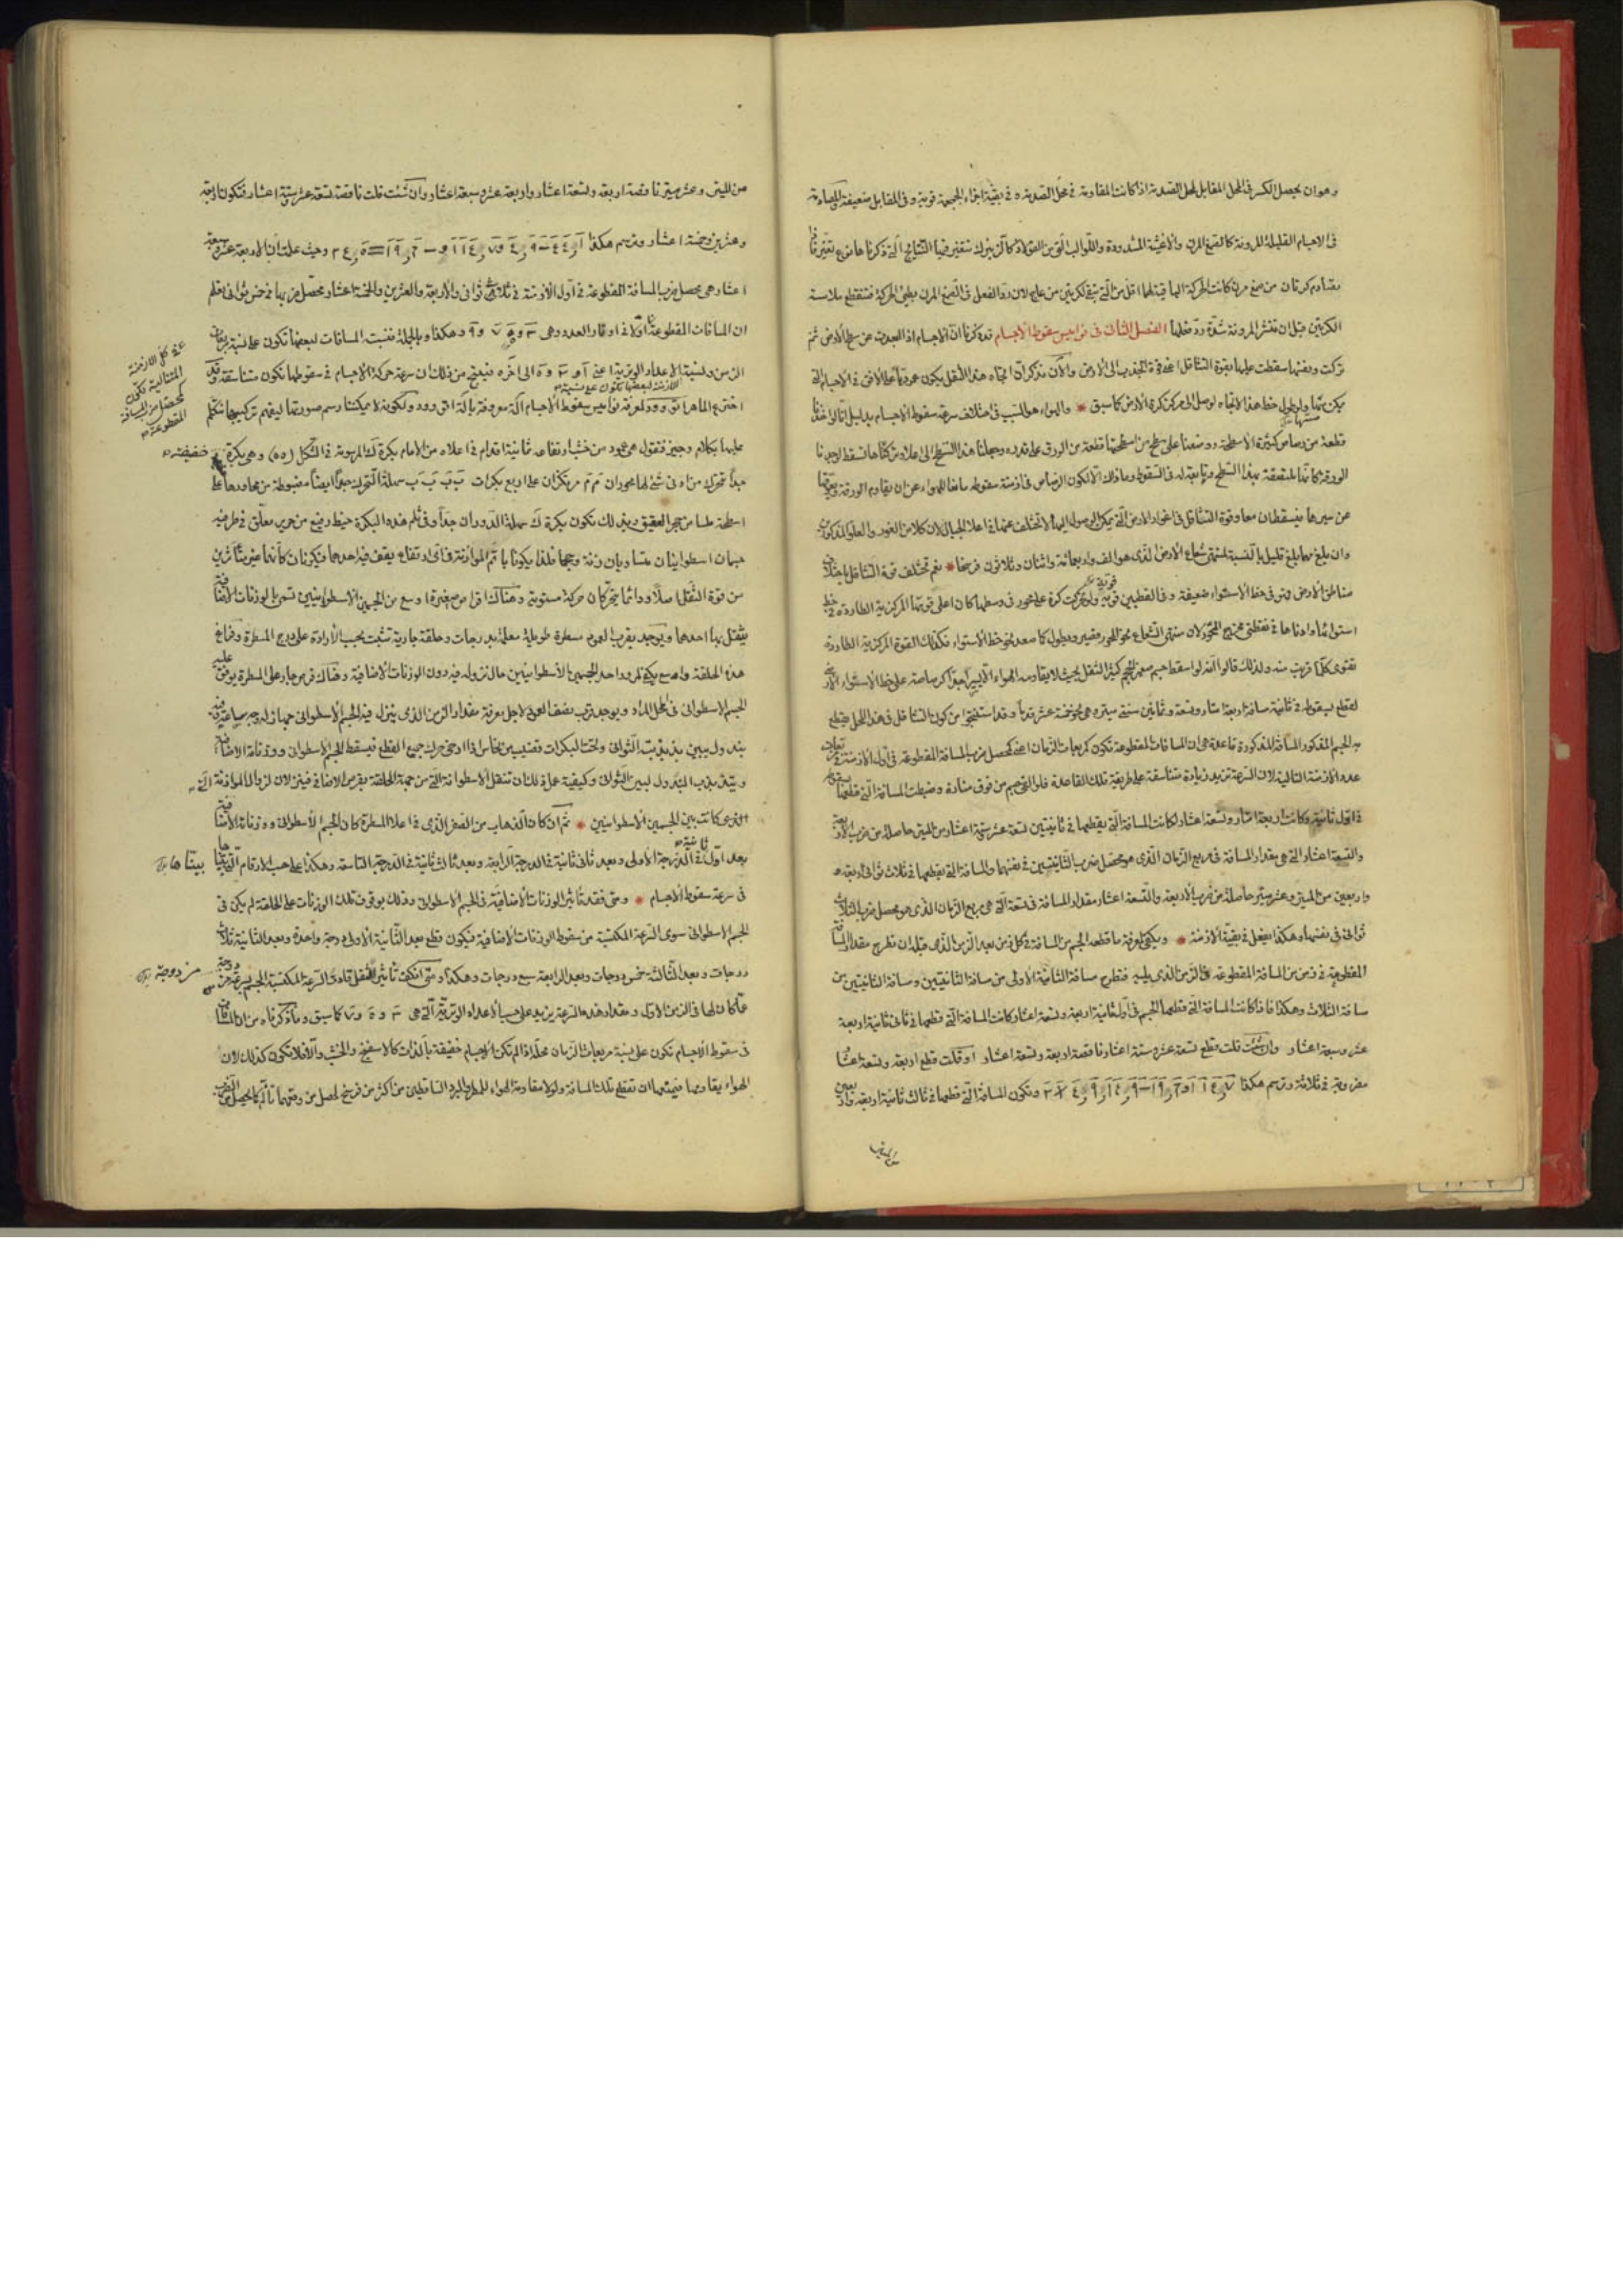 وهوان يحصل الكسر فى المحل المقابل لمحل الصدمة اذا كانت المقاومة فى محل الصدمة وفى بقية اجزاء الجمجمة قوية وفى المقابل ضعيفة
فى الاجسام القليلة المرونة كالصمغ المرن والاغشية المشدودة واللوالب
تصادم كرتان من صمغ مرن كانت الحركة الباقية لهما اقل من التى تبقى لكرتين من عاج لان رد الفعل فى الصمغ المرن بطئ الحركة فتنقطع ملامسة
الكرتين قبل ان تنتشر المرونة بشدة رد فعلها الفصل الثانى فى نواميس سقوط الاجسام قد ذكرنا ان الاجسام اذا ابعدت عن سطح الارض ثم
تركت ونفسها سقطت عليها بقوة التثاقل اعنى قوة الجذب الى الارض والآن نذكر ان اتجاه هذا الثقل يكون عموديا على الافق فى الاجسام التى
يمكن ولو طول خط هذا الاتجاه لوصل الى مركز كرة الارض كما سبق * والهواء هو السبب فى اختلاف سرعة سقوط الاجسام بدليل اننا لو اخذنا
قطعة من رصاص كثيرة الاسطحة ووضعنا على سطح من اسطحتها قطعة من الورق على قدره وجعلنا هذا السطح الى اعلا وتركناها تسقط لوجدنا
الورقة كأنها ملتصقة بهذا السطح وتابعة له فى السقوط وماذاك الا لكون الرصاص فى ازمنة سقوطه مانعا للهواء عن ان يقاوم الورقة ويعوقها
عن سيرها فيسقطان معا وقوة التثاقل فى اغوار الارض التى يمكن الوصول اليها لا تختلف عنها فى اعلا الجبال لان كلا من الغور والعلو المذكورين
وان بلغ مهما بلغ قليل بالنسبة لمنتهى شعاع الارض الذى هو الف واربعمائة واثنان وثلاثون فرسخا * نعم تختلف قوة التثاقل باختلاف
مناطق الارض فهى فى خط الاستواء ضعيفة وفى القطبين قوية ولو تحركت كرة على محور فى وسطها كان اعلى قوتها المركزية الطاردة فى خط
استوائها وادناها فى نقطتى
تقوى كلما قربت منه ولذلك قالوا انه لو سقط جسم صغير الحجم كثير الثقل بحيث لا يقاومه الهواء الا يسيرا جدا
لقطع بسقوطه فى ثانية مسافة اربعة امتار وتسعة وثمانين سنتى ميتره هى نحو خمسة عشر قدما وقد استنتجوا من كون التثاقل فى هذا المحل يقطع
به الجسم المذكور المسافة المذكورة قاعدة هى ان المسافات المقطوعة تكون كمربعات الزمان اعنى كمحصل ضرب المسافة المقطوعة فى اول الازمنة فى مربعات
عدد الازمنة التالية لان السرعة تزيد زيادة متناسقة على طريقة تلك القاعدة فلو القى جسم من فوق منارة وضبطت المسافة التى قطعها بسقوطه
فى اول ثانية وكانت اربعة امتار وتسعة اعشار لكانت المسافة التى يقطعها فى ثانيتين تسعة عشر وستة اعشار من الميتر حاصلة من ضرب الاربعة
والتسعة اعشار التى هى مقدار المسافة فى مربع الزمان الذى هو محصل ضرب الثانيتين فى نفسها والمسافة التى يقطعها فى ثلاث ثوانى اربعة
واربعين من الميتر وعشر ميتر حاصلة من ضرب الاربعة والتسعة اعشار مقدار المسافة فى تسعة التى هى مربع الزمان الذى هو محصل ضرب الثلاث
ثوانى فى نفسها وهكذا يفعل فى بقية الازمنة * ويكفى لمعرفة ما قطعه الجسم من المسافة فى كل زمن بعد الزمن الذى قبله ان تطرح مقدار المسافة
المقطوعة فى زمن من المسافة المقطوعة فى الزمن الذى يليه فتطرح مسافة الثانية الاولى من مسافة الثانيتين ومسافة الثانيتين من
مسافة الثلاث وهكذا فاذا كانت المسافة التى قطعها الجسم فى اول ثانية اربعة وتسعة اعشار كانت المسافة التى قطعها فى ثانى ثانية اربعة
عشر وسبعة اعشار وان شئت قلت قطع تسعة عشر وستة اعشار ناقصة اربعة وتسعة اعشار او قلت قطع اربعة وتسعة اعشار
مضروبة فى ثلاثة وترسم هكذا وتكون المسافة التى قطعها فى ثالث ثانية اربعة واربعين
من الميتر وعشر ميتر ناقصة اربعة وتسعة اعشار واربعة عشر وسبعة اعشار وان شئت قلت ناقصة تسعة عشر وستة اعشار فتكون اربعة
وعشرين وخمسة اعشار وترسم هكذا وحيث علمت ان الاربعة عشر وسبعة
اعشار هى محصل ضرب المسافة المقطوعة فى اول الازمنة فى ثلاث ثوانى والاربعة والعشرين والخمسة اعشار محصل ضربها فى خمس ثوانى تعلم
ان المسافات المقطوعة وهكذا وبالجملة فنسبة المسافات لبعضها تكون على نسبة مربعات
الزمن ولنسبة الاعداد الوترية اعنى الى اخره فينتج من ذلك ان سرعة حركة الاجسام فى سقوطها تكون متناسقة وقد
اخترع الماهر اتوود لمعرفة نواميس سقوط الاجسام آلة معروفة بآلة اتوود ولكونه لا يمكننا رسم صورتها ليفهم تركيبها نتكلم
عليها بكلام وجيز فنقول هى عمود من خشب ارتفاعه ثمانية اقدام فى اعلاه من الامام بكرة ك المرسومة فى الشكل (٥٥) وهى بكرة خفيفة
جدا تتحرك
اسطحة ملسا من حجر العقيق وبذلك تكون بكرة ك سهلة الدوران جدا وفى ثلم هذه البكرة خيط رفيع من حرير معلق فى طرفيه
جسمان اسطوانيان متساويان زنة وحجما فلذا يكونا باتم الموازنة فى اى ارتفاع يقف فيه احدهما فيكونان كأنهما غير متأثرين
من قوة الثقل اصلا ودائما يتحركان حركة مستوية وهناك اقراص صغيرة اوسع من الجسمين الاسطوانيين تسمى بالوزنات الاضافية
يثقل بها احدها ويوجد بقرب العمود مسطرة طويلة معلمة بدرجات وحلقة جارية تثبت بحسب الارادة على درج المسطرة وفراغ
هذه الحلقة واسع يكفى لمرور احد الجسمين الاسطوانيين حال نزوله فيه دون الوزنات الاضافية وهناك قرص جار على المسطرة يوقف عليه
الجسم الاسطوانى فى المحل المراد ويوجد قرب نصف العمود لاجل معرفة مقدار الزمن الذى ينزل فيه الجسم الاسطوانى
بندول يبين بذبذبته الثوانى
ويبتدئ بذبذب البندول ليبين الثوانى وكيفية عمل ذلك ان تثقل الاسطوانة التى من جهة الحلقة بقرص الاضافى فينزلان لزوال الموازنة التى
كانت بين الجسمين الاسطوانيين * ثم ان كان الذهاب من الصفر الذى فى اعلا المسطرة كان الجسم الاسطوانى ووزناته الاضافية
بعد اول ثانية فى الدرجة الاولى وبعد ثانى ثانية فى الدرجة الرابعة وبعد ثالث ثانية فى الدرجة التاسعة وهكذا على حسب الارقام التى بيناها
فى سرعة سقوط الاجسام * ومتى فقد تأثير الوزنات الاضافية فى الجسم الاسطوانى وذلك بوقوف تلك الوزنات على الحلقة لم يكن فى
الجسم الاسطوانى سوى السرعة المكتسبة من سقوط الوزنات الاضافية فيكون قطع بعد الثانية الاولى درجة واحدة وبعد الثانية ثلاث
درجات وبعد الثالثة خمس درجات وبعد الرابعة سبع درجات وهكذا ومتى
عما كان لها فى الزمن الاول ومقدار هذه السرعة يزيد على حسب الاعداد الوترية التى هى كما سبق وما ذكرناه من ان المسافات
فى سقوط الاجسام تكون على نسبة مربعات الزمان محله اذا لم تكن الاجسام خفيفة بالذات كالاسفنج والخشب والا فلا تكون كذلك لان
الهواء يقاومها فيمنعها ان تقطع تلك المسافة ولولا مقاومة الهواء للمطر والبرد الساقطين من اكثر من فرسخ لحصل من وقعها تألم كما يحصل من